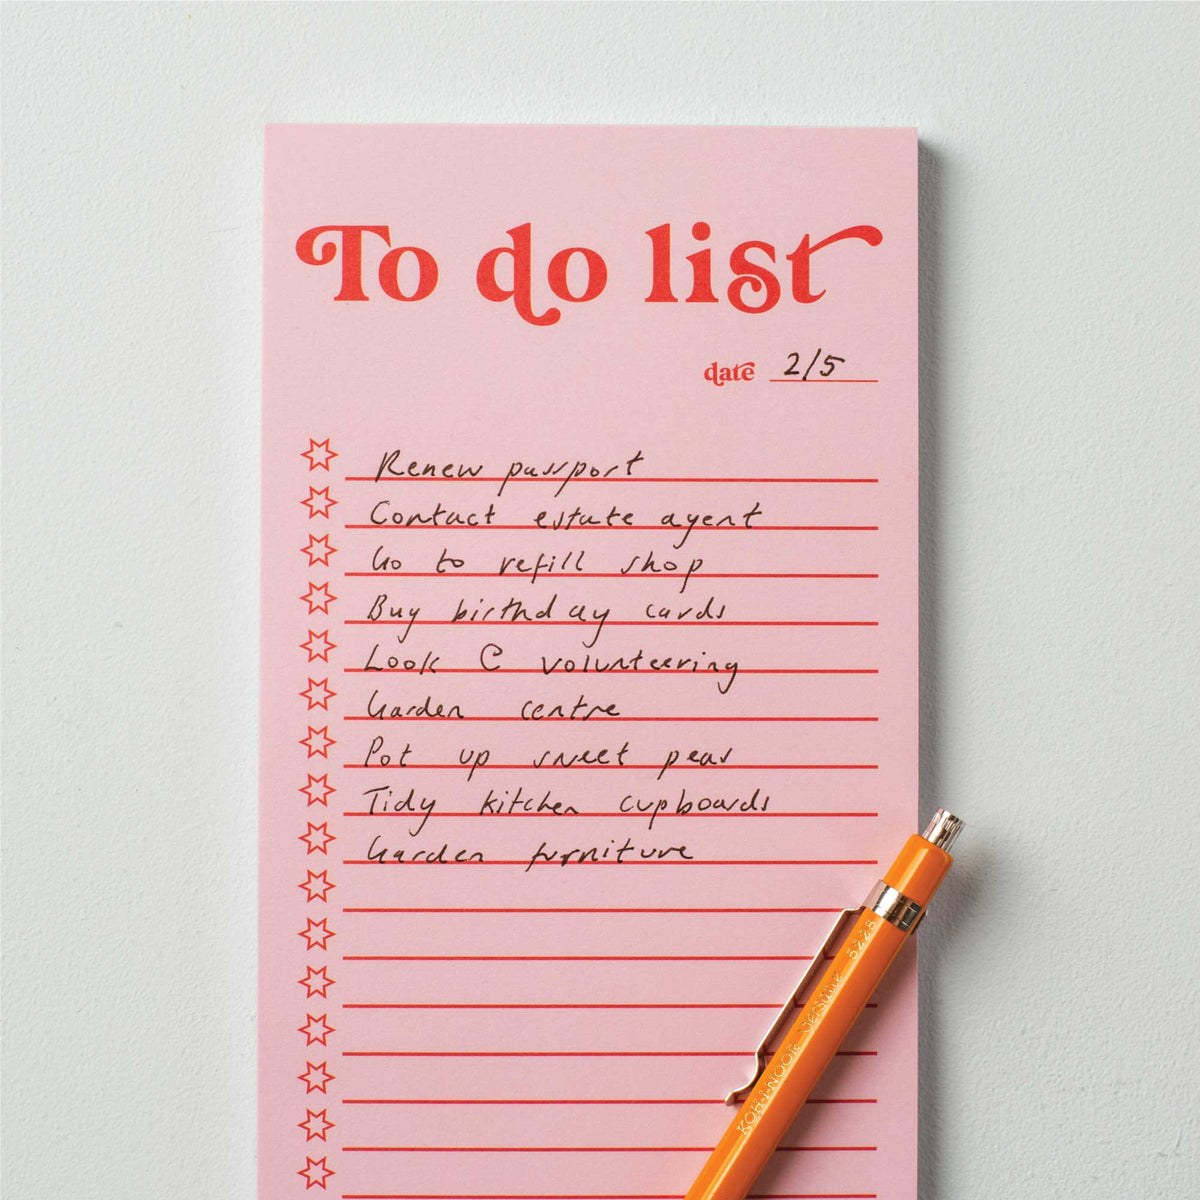 To do list
date 2/5
Renew passport
Contact estate agent
Go to refill shop
Buy birthday cards
Look @ volunteering
Garden centre
Pot up sweet peas
Tidy kitchen cupboards
Garden furniture
KOH-I-NOOR Versatil 5228